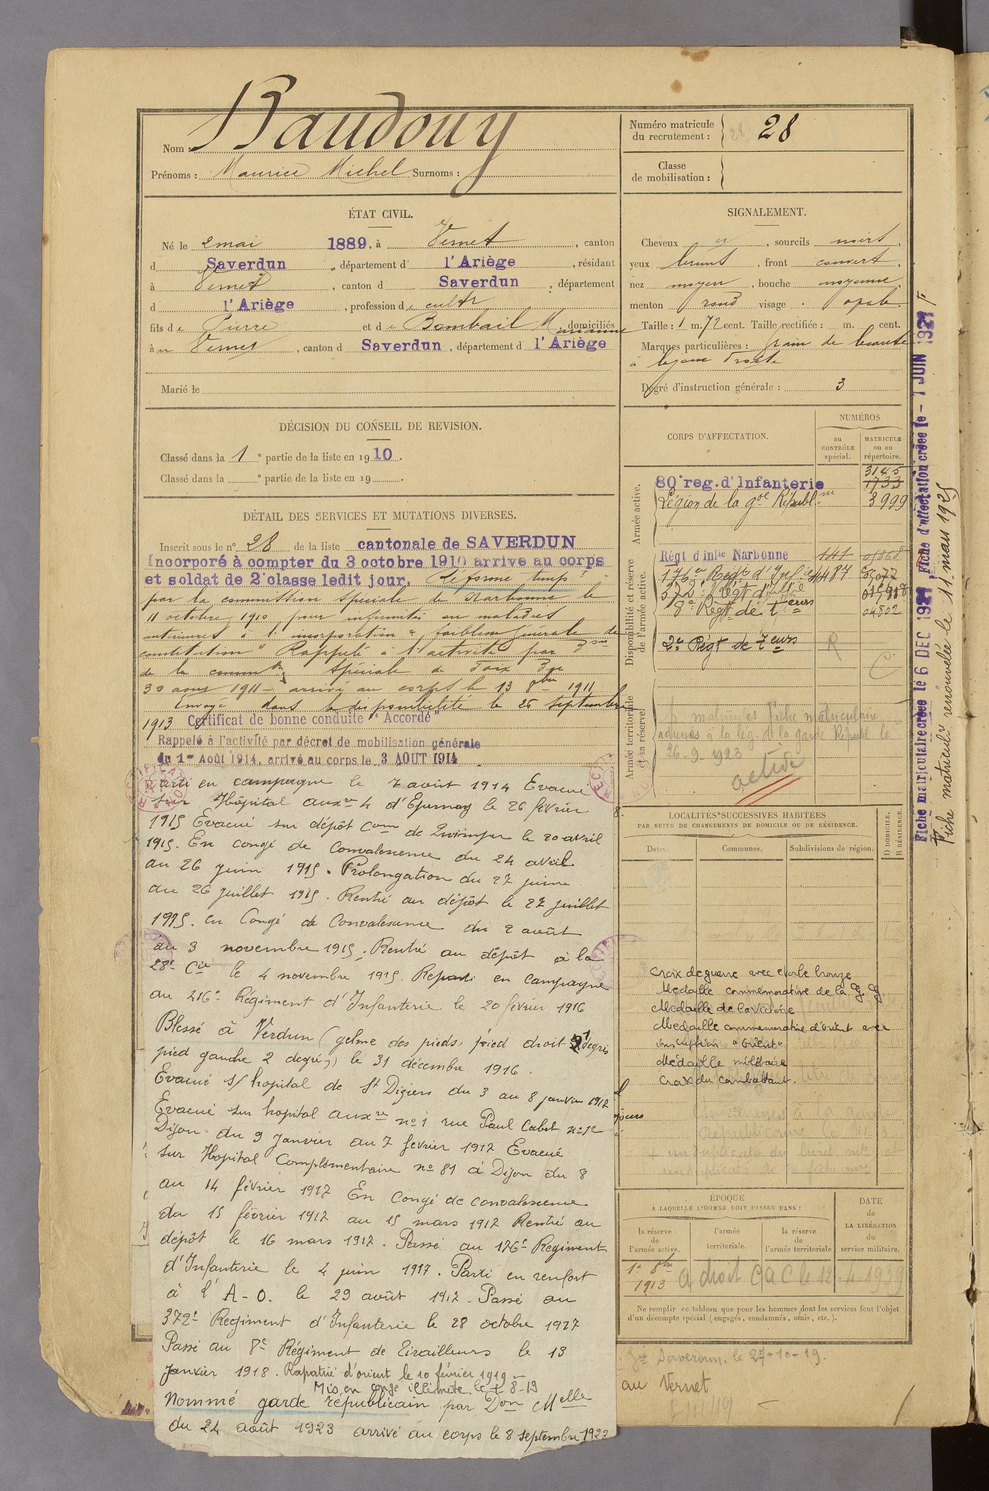 Nom : Baudouy
Prénoms : Maurice Michel Surnoms :
Numéro matricule du recrutement : 28
Classe de mobilisation :
ÉTAT CIVIL.
Né le 2 mai 1889, à Vernet, canton
d Saverdun, département d l'Ariège, résidant
à Vernet, canton d Saverdun, département
d l'Ariège, profession de cultr
fils de Pierre et de Bombail Marianne domiciliés
à Vernet, canton d Saverdun, département d l'Ariège
Marié le
SIGNALEMENT.
Cheveux , sourcils noirs,
yeux bruns, front couvert,
nez moyen, bouche moyenne,
menton rond visage ovale.
Taille : 1 m. 72 cent. Taille rectifiée : m. cent.
Marques particulières : grain de beauté
à la joue droite
Degré d'instruction générale : 3
DÉCISION DU CONSEIL DE REVISION.
Classé dans la 1e partie de la liste en 1910.
Classé dans la e partie de la liste en 19 .
DÉTAIL DES SERVICES ET MUTATIONS DIVERSES.
Inscrit sous le n° 28 de la liste cantonale de SAVERDUN
Incorporé à compter du 3 octobre 1910 arrivé au corps
et soldat de 2e classe ledit jour. Réformé tempre
par la commission spéciale de Narbonne le
11 octobre 1910 pour infirmités ou maladies
antérieures à l'incorporation "faiblesse générale de
constitution" Rappelé à l'activité par
de la common spéciale de Foix du
30 août 1911 - arrivé au corps le 13 8bre 1911
Envoyé dans la disponibilité le 25 septembre
1913 Certificat de bonne conduite "Accordé"
Rappelé à l'activité par décret de mobilisation générale
du 1er Août 1914, arrivé au corps le 3 AOUT 1914
Parti en campagne le 7 août 1914 Evacué
sur Hôpital auxre 4 d'Epernay le 26 février
1915 Evacué sur dépôt Com de Quimper le 20 avril
1915. En congé de convalescence du 24 avril
au 26 juin 1915. Prolongation du 27 juin
au 26 juillet 1915. Rentré au dépôt le 27 juillet
1915. en Congé de Convalescence du 2 août
au 3 novembre 1915. Rentré au dépôt à la
28e Cie le 4 novembre 1915. Reparti en campagne
au 216e Régiment d'Infanterie le 20 février 1916
Blessé à Verdun (gelure des pieds, pied droit 1 degrés
pied gauche 2 degrés) le 31 décembre 1916.
Evacué s/ hopital de St Dizier du 3 au 8 janvier 1917
Evacué sur hopital auxre n° 1 rue Paul Cabet
Dijon du 9 janvier au 7 février 1917 Evacué
sur Hopital Complémentaire n° 81 à Dijon du 8
au 14 février 1917 En Congé de convalescence
du 15 février 1917 au 15 mars 1917 Rentré au
dépôt le 16 mars 1917. Passé au 176e Régiment
d'Infanterie le 4 juin 1917. Parti en renfort
à l'A-O. le 29 août 1917. Passé au
372e Régiment d'Infanterie le 28 octobre 1917
Passé au 8e Régiment de Tirailleurs le 13
janvier 1918. Rapatrié d'orient le 10 février 1919 -
Mis en congé illimité le 8-19
Nommé garde républicain par Don Melle
du 24 août 1923 arrivé au corps le 8 septembre 1923
CORPS D'AFFECTATION.
NUMÉROS
AU CONTRÔLE spécial.
MATRICULE ou au répertoire.
Armée active.
80e reg. d'Infanterie
3145
1733
Légion de la gde Républne 3999
Disponibilité et réserve de l'armée active.
Régt d'Infie Narbonne 141
176e Regt d'Infie
372e Régt d'Infie
8e Régt de treurs 04502
2e Régt de Teurs R
Armée territoriale et sa réserve
matricules fiche matriculaire
adressés à la lég. de la garde Républ. le
26-9-1923
active
LOCALITÉS SUCCESSIVES HABITÉES
PAR SUITE DE CHANGEMENTS DE DOMICILE OU DE RÉSIDENCE.
Dates. Communes. Subdivisions de région. D DOMICILE. R RÉSIDENCE.
Croix de guerre avec étoile bronze
Médaille commemorative de la G. G.
Médaille de la Victoire
Médaille commemorative d'orient avec
inscription "Orient"
Médaille militaire
Croix du combattant.
ÉPOQUE
À LAQUELLE L'HOMME DOIT PASSER DANS :
la réserve de l'armée active.
l'armée territoriale.
la réserve de l'armée territoriale
DATE DE LA LIBÉRATION du service militaire.
1er 8bre 1913 a droit C a C le 12-4-1939
Ne remplir ce tableau que pour les hommes dont les services font l'objet
d'un décompte spécial (engagés, condamnés, omis, etc.).
Saverdun, le 27-10-19.
au Vernet
Fiche matriculaire créée le 6 DEC 1921 Fiche d'affectation créée le - 1 JUIN 1921
Fiche matricule renouvelée le 11 mars 1925